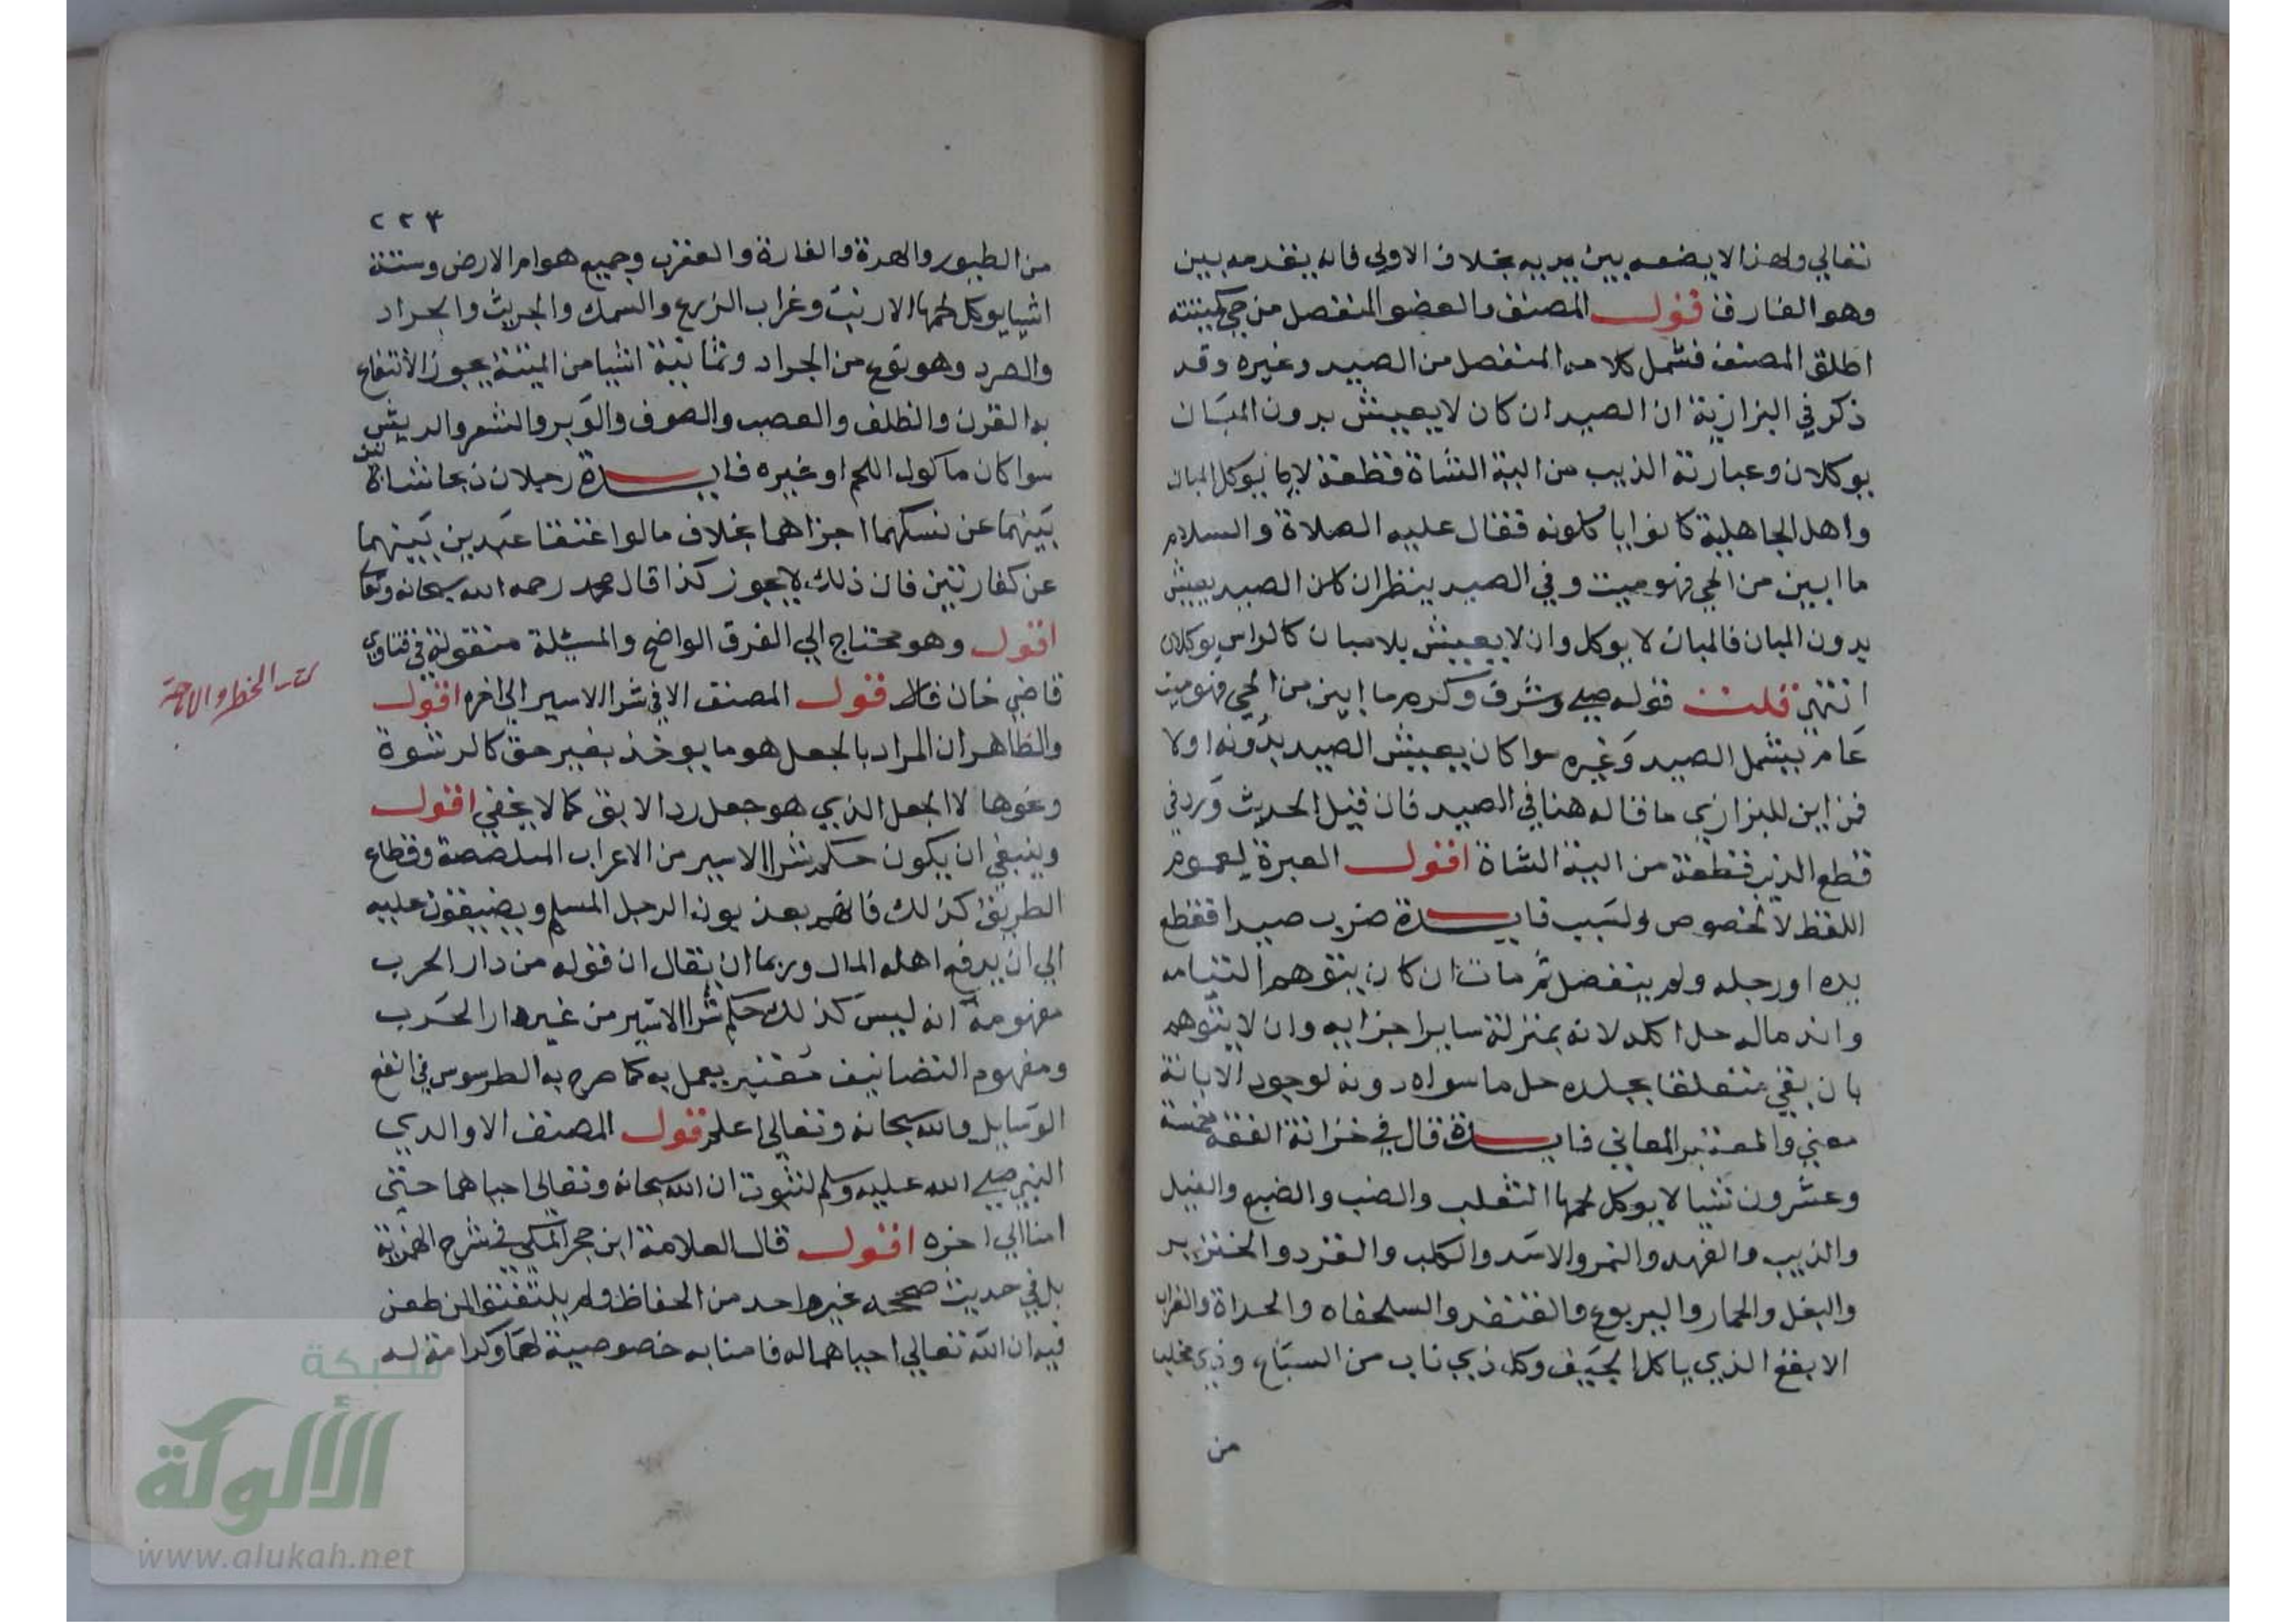 تعالي ولهذا لا يضعه بين يديه بخلاف الاولي فانه يقدمه بين
وهو الفارق قول المصنف والعضو المنفصل من حي كميتته
اطلق المصنف فشمل كلامه المنفصل من الصيد وغيره وقد
ذكر في البزازية ان الصيد ان كان لا يعيش بدون المبان
يوكلان وعبارته الذيب من الية الشاة قطعة لا يوكل المبان
واهل الجاهلية كانوا ياكلونه فقال عليه الصلاة والسلام
ما ابين من الحي فهو ميت وفي الصيد ينظر ان كان الصيد يعيش
بدون المبان فالمبان لا يوكل وان لا يعيش بلا مبان كالراس يوكلان
انتهى قلت قوله صلي وشرف وكرم ما ابين من الحي فهو ميت
عام يشمل الصيد وغيره سوا كان يعيش الصيد بدونه اولا
فمن اين للبزازي ما قاله هنا في الصيد فان قيل الحديث ورد في
قطع الذيب قطعة من الية الشاة اقول العبرة لعموم
اللفظ لا لخصوص ولسبب فايدة ضرب صيدا فقطع
يده او رجله ولم ينفصل ثم مات ان كان يتوهم التيامه
واندماله حل اكله لانه بمنزلة ساير اجزايه وان لا يتوهم
بان بقي متعلقا بجلده حل ما سواه دونه لوجود الابانة
معني والمعتبر المعاني فايدة قال في خزانة الفقه خمسة
وعشرون شيا لا يوكل لحمها الثعلب والضب والضبع والفيل
والذيب والفهد والنمر والاسد والكلب والقرد والخنزير
والبغل والحمار واليربوع والقنفد والسلحفاه والحداة والغراب
الابقع الذي ياكل الجيف وكل ذي ناب من السباع وذي مخلب
من
٢٢٣
من الطيور والهرة والفارة والعقرب وجميع هوام الارض وستة
اشيا يوكل لحمها الارنب وغراب الزرع والسمك والجريث والجراد
والصرد وهو نوع من الجراد وثمانية اشيا من الميتة يجوز الانتفاع
به القرن والظلف والعصب والصوف والوبر والشعر والريش
سوا كان ماكول اللحم او غيره فايدة رجلان ذبحا شاتين
بينهما عن نسكهما اجزاهما بخلاف ما لو اعتقا عبدين بينهما
عن كفارتين فان ذلك لا يجوز كذا قال محمد رحمه الله سبحانه وتعا
اقول وهو محتاج الي الفرق الواضح والمسيلة منقولة في فتاوي
قاضي خان قال قول المصنف الا في شرا الاسير الي اخره اقول
والظاهر ان المراد بالجعل هو ما يوخذ بغير حق كالرشوة
ونحوها لا الجعل الذي هو جعل رد الابق كما لا يخفي اقول
وينبغي ان يكون حكم شرا الاسير من الاعراب المتلصصة وقطاع
الطريق كذلك فانهم يعذبون الرجل المسلم ويضيقون عليه
الي ان يدفع اهله المال وربما ان يقال ان قوله من دار الحرب
مفهومه انه ليس كذلك حكم شرا الاسير من غير دار الحرب
ومفهوم التصانيف معتبر يعمل به كما صرح به الطرسوس في انفع
الوسايل والله سبحانه وتعالي اعلم قول المصنف الا والدي
النبي صلي الله عليه وسلم لثبوت ان الله سبحانه وتعالي احياهما حتي
امنا الي اخره اقول قال العلامة ابن حجر المكي في شرح الهمزية
بل في حديث صححه غير واحد من الحفاظ ولم يلتفتوا لمن طعن
فيه ان الله تعالي احياهما له فامنا به خصوصية لهما وكرامة له
كتاب الحظر والاباحة
شبكة
الألوكة
www.alukah.net